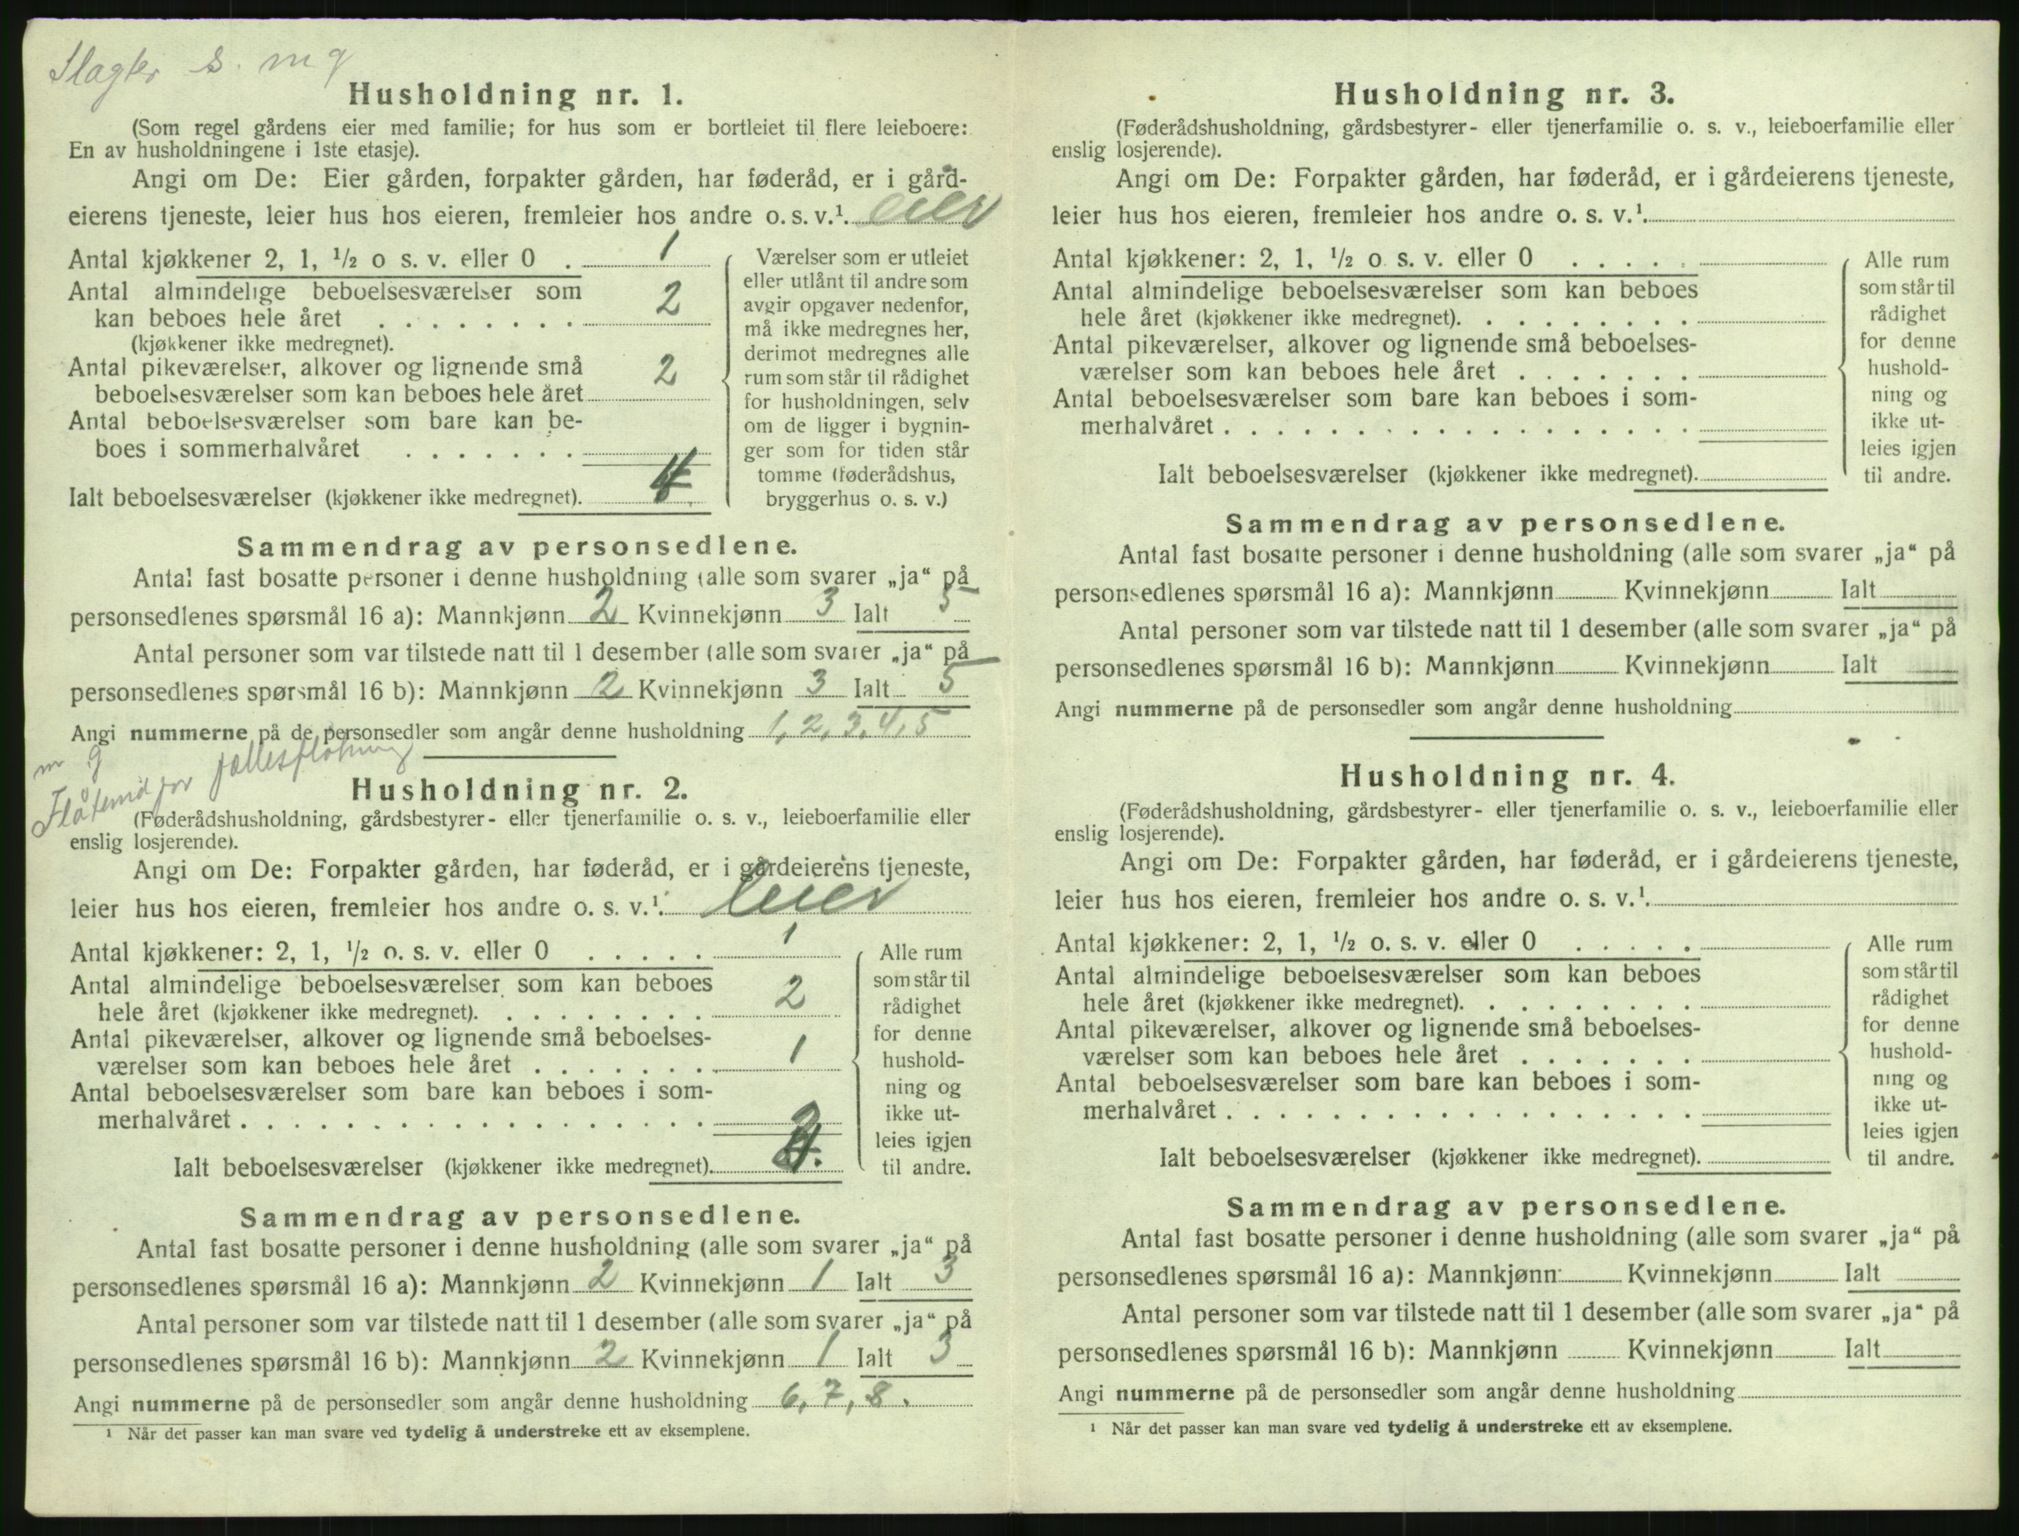 Slagter s. m g
Husholdning nr. 1.
(Som regel gårdens eier med familie; for hus som er bortleiet til flere leieboere:
En av husholdningene i 1ste etasje).
Angi om De: Eier gården, forpakter gården, har føderåd, er i gård-
eierens tjeneste, leier hus hos eieren, fremleier hos andre o. s. v.¹. eier
Antal kjøkkener 2, 1, ½ o s. v. eller 0 . 1
Antal almindelige beboelsesværelser som
kan beboes hele året . . . . . . . . 2
(kjøkkener ikke medregnet).
Antal pikeværelser, alkover og lignende små
beboelsesværelser som kan beboes hele året 2
Antal beboelsesværelser som bare kan be-
boes i sommerhalvåret . . . . . . .
Ialt beboelsesværelser (kjøkkener ikke medregnet). 4
Værelser som er utleiet
eller utlånt til andre som
avgir opgaver nedenfor,
må ikke medregnes her,
derimot medregnes alle
rum som står til rådighet
for husholdningen, selv
om de ligger i bygnin-
ger som for tiden står
tomme (føderådshus,
bryggerhus o. s. v.)
Sammendrag av personsedlene.
Antal fast bosatte personer i denne husholdning (alle som svarer „ja“ på
personsedlenes spørsmål 16 a): Mannkjønn 2 Kvinnekjønn 3 Ialt 5
Antal personer som var tilstede natt til 1 desember (alle som svarer „ja“ på
personsedlenes spørsmål 16 b): Mannkjønn 2 Kvinnekjønn 3 Ialt 5
Angi nummerne på de personsedler som angår denne husholdning 1, 2, 3, 4, 5
m g
for fællesfløtning
Husholdning nr. 2.
(Føderådshusholdning, gårdsbestyrer- eller tjenerfamilie o. s. v., leieboerfamilie eller
enslig losjerende).
Angi om De: Forpakter gården, har føderåd, er i gårdeierens tjeneste,
leier hus hos eieren, fremleier hos andre o. s. v.¹. leier
Antal kjøkkener: 2, 1, ½ o. s. v. eller 0 . . . . . 1
Antal almindelige beboelsesværelser som kan beboes
hele året (kjøkkener ikke medregnet). . . . . . . . . 2
Antal pikeværelser, alkover og lignende små beboelses-
værelser som kan beboes hele året . . . . . . . 1
Antal beboelsesværelser som bare kan beboes i som-
merhalvåret . . . . . . . . . . . . . . . . . .
Ialt beboelsesværelser (kjøkkener ikke medregnet). 3
Alle rum
som står til
rådighet
for denne
hushold-
ning og
ikke ut-
leies igjen
til andre.
Sammendrag av personsedlene.
Antal fast bosatte personer i denne husholdning (alle som svarer „ja“ på
personsedlenes spørsmål 16 a): Mannkjønn 2 Kvinnekjønn 1 Ialt 3
Antal personer som var tilstede natt til 1 desember (alle som svarer „ja“ på
personsedlenes spørsmål 16 b): Mannkjønn 2 Kvinnekjønn 1 Ialt 3
Angi nummerne på de personsedler som angår denne husholdning 6, 7, 8.
¹ Når det passer kan man svare ved tydelig å understreke ett av eksemplene.
Husholdning nr. 3.
(Føderådshusholdning, gårdsbestyrer- eller tjenerfamilie o. s. v., leieboerfamilie eller
enslig losjerende).
Angi om De: Forpakter gården, har føderåd, er i gårdeierens tjeneste,
leier hus hos eieren, fremleier hos andre o. s. v.¹.
Antal kjøkkener: 2, 1, ½ o s. v. eller 0 . . . . .
Antal almindelige beboelsesværelser som kan beboes
hele året (kjøkkener ikke medregnet). . . . . . . . .
Antal pikeværelser, alkover og lignende små beboelses-
værelser som kan beboes hele året . . . . . . .
Antal beboelsesværelser som bare kan beboes i som-
merhalvåret . . . . . . . . . . . . . . . . . .
Ialt beboelsesværelser (kjøkkener ikke medregnet).
Alle rum
som står til
rådighet
for denne
hushold-
ning og
ikke ut-
leies igjen
til andre.
Sammendrag av personsedlene.
Antal fast bosatte personer i denne husholdning (alle som svarer „ja“ på
personsedlenes spørsmål 16 a): Mannkjønn Kvinnekjønn Ialt
Antal personer som var tilstede natt til 1 desember (alle som svarer „ja“ på
personsedlenes spørsmål 16 b): Mannkjønn Kvinnekjønn Ialt
Angi nummerne på de personsedler som angår denne husholdning
Husholdning nr. 4.
(Føderådshusholdning, gårdsbestyrer- eller tjenerfamilie o. s. v., leieboerfamilie eller
enslig losjerende).
Angi om De: Forpakter gården, har føderåd, er i gårdeierens tjeneste,
leier hus hos eieren, fremleier hos andre o. s. v.¹.
Antal kjøkkener: 2, 1, ½ o. s. v. eller 0 . . . . .
Antal almindelige beboelsesværelser som kan beboes
hele året (kjøkkener ikke medregnet). . . . . . . . .
Antal pikeværelser, alkover og lignende små beboelses-
værelser som kan beboes hele året . . . . . . .
Antal beboelsesværelser som bare kan beboes i som-
merhalvåret . . . . . . . . . . . . . . . . . .
Ialt beboelsesværelser (kjøkkener ikke medregnet).
Alle rum
som står til
rådighet
for denne
hushold-
ning og
ikke ut-
leies igjen
til andre.
Sammendrag av personsedlene.
Antal fast bosatte personer i denne husholdning (alle som svarer „ja“ på
personsedlenes spørsmål 16 a): Mannkjønn Kvinnekjønn Ialt
Antal personer som var tilstede natt til 1 desember (alle som svarer „ja“ på
personsedlenes spørsmål 16 b): Mannkjønn Kvinnekjønn Ialt
Angi nummerne på de personsedler som angår denne husholdning
¹ Når det passer kan man svare ved tydelig å understreke ett av eksemplene.